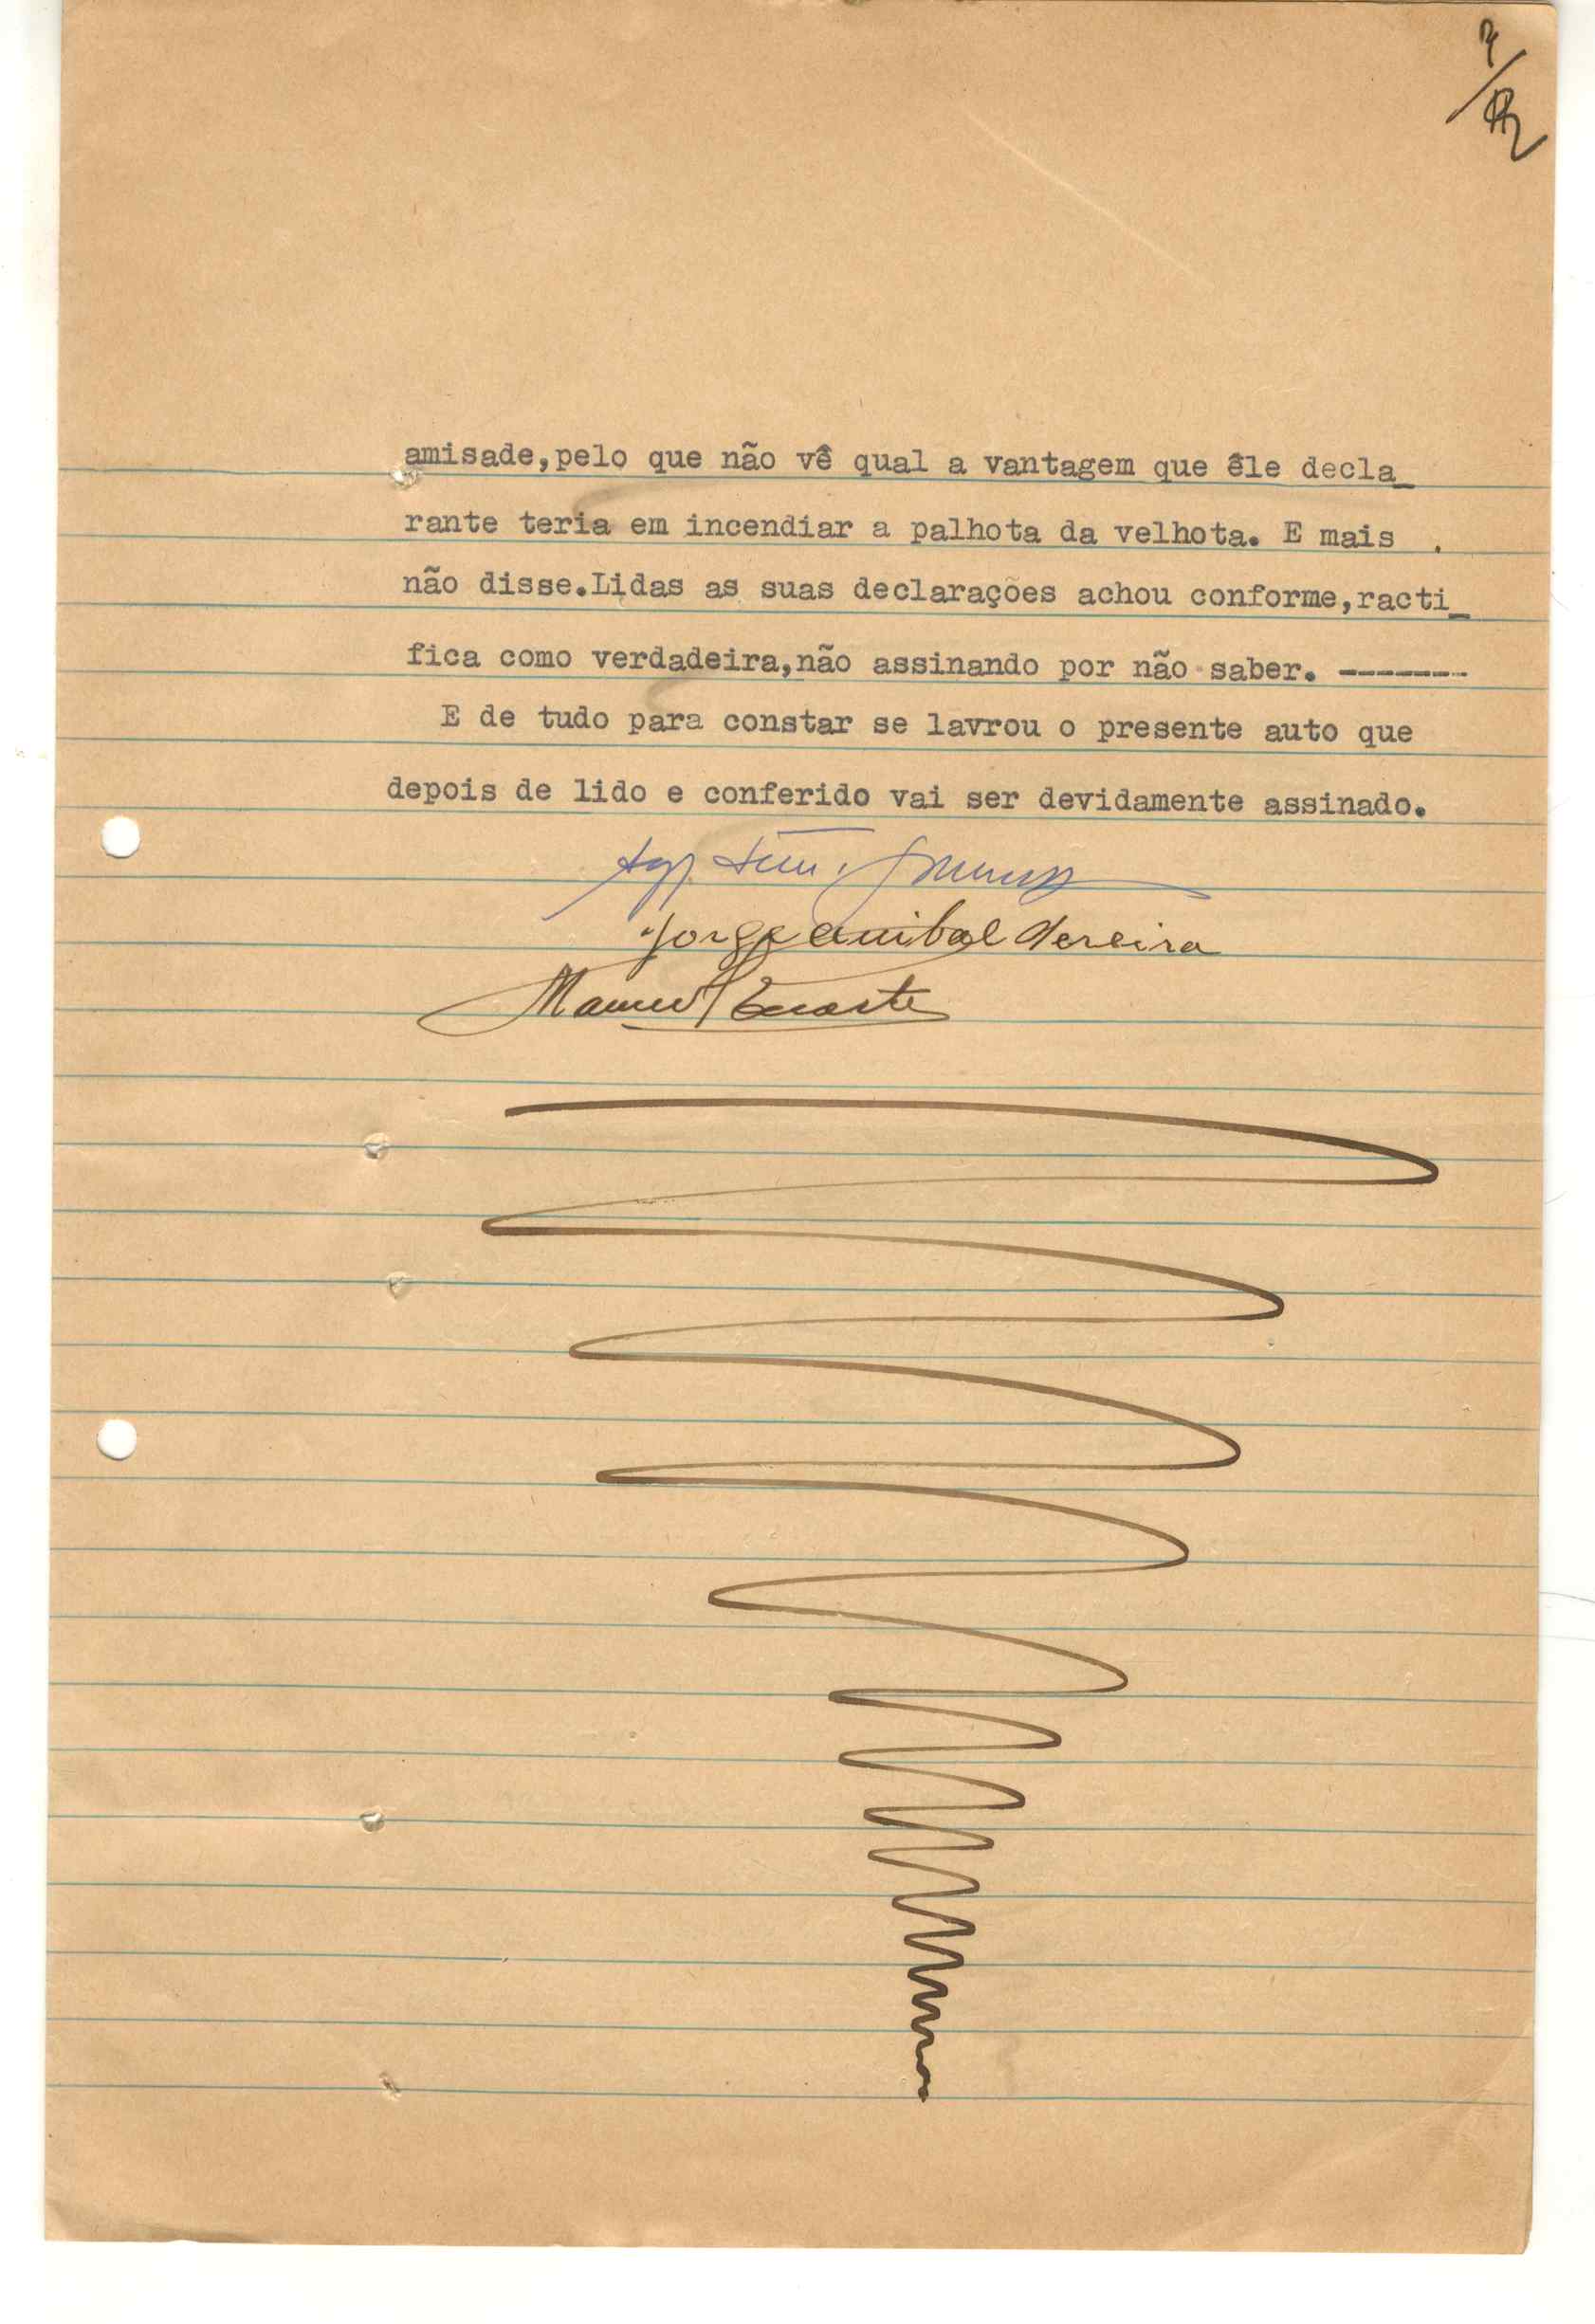 amisade,pelo que não vê qual a vantagem que êle decla_
rante teria em incendiar a palhota da velhota. E mais .
não disse.Lidas as suas declarações achou conforme,racti_
fica como verdadeira,não assinando por não saber. -------
E de tudo para constar se lavrou o presente auto que
depois de lido e conferido vai ser devidamente assinado.
Jorge Anibal Pereira
Manuel Duarte